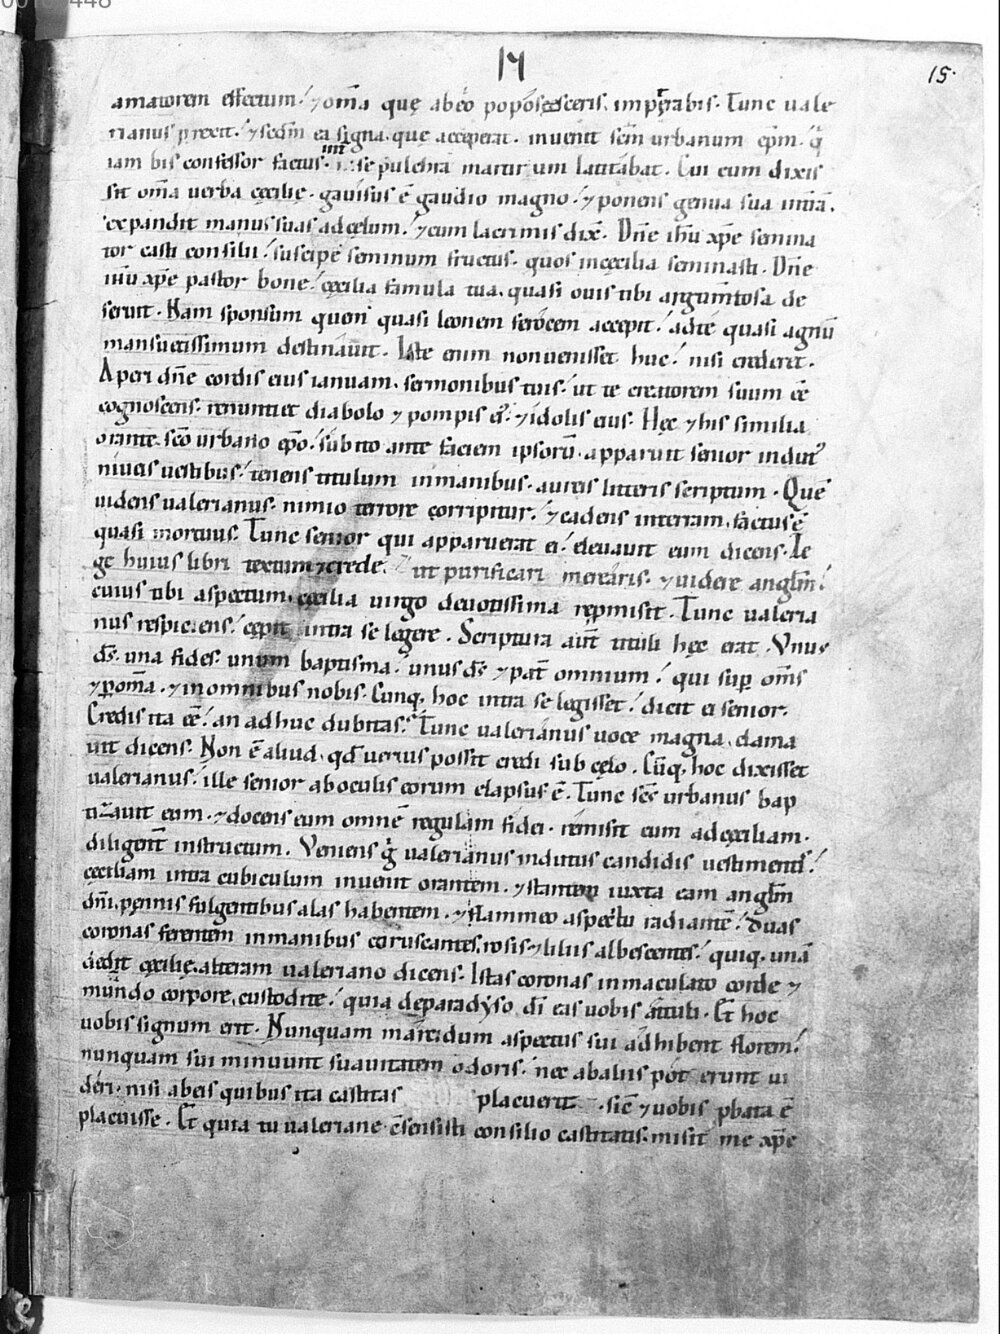 14
15.
amatorem effectum. ⁊ om̅a quę ab eo poposceris, impetrabis. Tunc vale
rianus prexit. ⁊ sedm̅ ea signa que acceperat. invenit sc̅m urbanum ep̅m. q̅
iam bis confessor factus. se pulchra martirum latitabat. Cui cum dixis
sit om̅a verba cęcilię. gavisus e̅ gaudio magno. ⁊ ponens genua sua in terra̅.
expandit manus suas ad cęlum. ⁊ cum lacrimis dix̅. Dn̅e ih̅u xp̅e semina
tor casti consilii. suscipe seminum fructus. quos in cęcilia seminasti. Dn̅e
ih̅u xp̅e pastor bone. cęcilia famula tua, quasi ovis tibi argum̅tosa de
servit. Nam sponsum quem quasi leonem ferocem accepit. ad te quasi agnu̅
mansuetissimum destinavit. Iste enim non venisset huc. nisi crederet.
Aperi dn̅e cordis eius ianuam, sermonibus tuis. ut te creatorem suum e̅e
cognoscens. renuntiet diabolo ⁊ pompis ei᾽. ⁊ idolis eius. Hęc ⁊ his similia
orante sc̅o urbano ep̅o. subito ante faciem ipsoru̅. apparuit senior indut᾽
niveis vestibus. tenens titulum in manibus. aureis litteris scriptum. Que̅
videns valerianus. nimio terrore corripitur. ⁊ cadens in terram, factus e̅
quasi mortuus. Tunc senior qui apparuerat ei. elevavit eum dicens. Le
ge huius libri textum ⁊ crede. ut purificari merearis. ⁊ videre angl̅m.
cuius tibi aspectum, cęcilia virgo devotissima repmisit. Tunc valeria
nus respiciens. cępit intra se legere. Scriptura aut̅ tituli hęc erat. Unus
ds̅. una fides. unum baptisma. unus ds̅ ⁊ pat̅ omnium. qui sup̅ om̅s
⁊ p̅ om̅a. ⁊ in omnibus nobis. Cunq, hoc intra se legisset. dicit ei senior.
Credis ita e̅e. an adhuc dubitas. Tunc valerianus voce magna, clama
vit dicens. Non e̅ aliud, qd̅ verius possit credi sub cęlo. Cu̅q, hoc dixisset
valerianus. ille senior ab oculis eorum elapsus e̅. Tunc sc̅s urbanus bap
tizavit eum. ⁊ docens eum omne̅ regulam fidei. remisit eum ad cęciliam.
diligent̅ instructum. Veniens g̅ valerianus indutus candidis vestimentis.
cęciliam intra cubiculum invenit orantem. ⁊ stantem iuxta eam angl̅m
dn̅i, pennis fulgentibus alas habentem. ⁊ flammeo aspectu radiante̅. Duas
coronas ferentem in manibus coruscantes, rosis ⁊ liliis albescentes. quiq, una̅
dedit cęcilię, alteram valeriano dicens. Istas coronas inmaculato corde ⁊
mundo corpore, custodite. quia de paradyso di̅ eas vobis attuli. Et hoc
vobis signum erit. Nunquam marcidum aspectus sui adhibent florem.
nunquam sui minuunt suavitatem odoris. nec ab aliis pot̅erunt vi
deri. nisi ab eis quibus ita castitas placuerit. sic̅ ⁊ vobis p̅bata e̅
placuisse. Et quia tu valeriane c̅sensisti consilio castitatis. misit me xp̅c